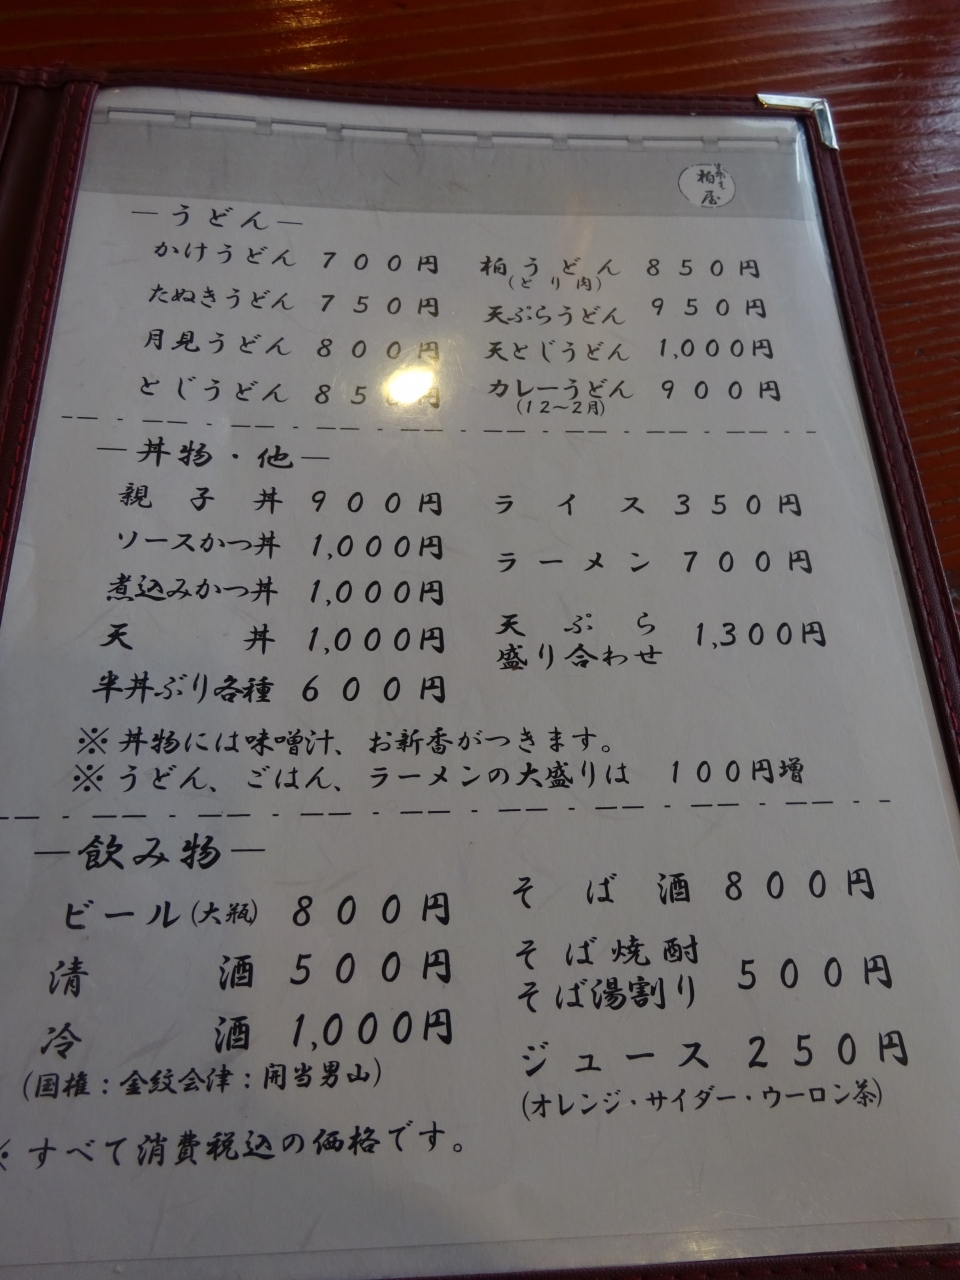 柏屋
—うどん—
かけうどん 700円
たぬきうどん 750円
月見うどん 800円
とじうどん 85 円
柏うどん 850円
(とり肉)
天ぷらうどん 950円
天とじうどん 1,000円
カレーうどん 900円
(12〜2月)
—丼物・他—
親子丼 900円
ソースかつ丼 1,000円
煮込みかつ丼 1,000円
天丼 1,000円
半丼ぶり各種 600円
ライス 350円
ラーメン 700円
天ぷら
盛り合わせ 1,300円
※丼物には味噌汁、お新香がつきます。
※うどん、ごはん、ラーメンの大盛りは 100円増
—飲み物—
ビール(大瓶) 800円
清酒 500円
冷酒 1,000円
(国権:金紋会津:開当男山)
そば酒 800円
そば焼酎
そば湯割り 500円
ジュース 250円
(オレンジ・サイダー・ウーロン茶)
※すべて消費税込の価格です。